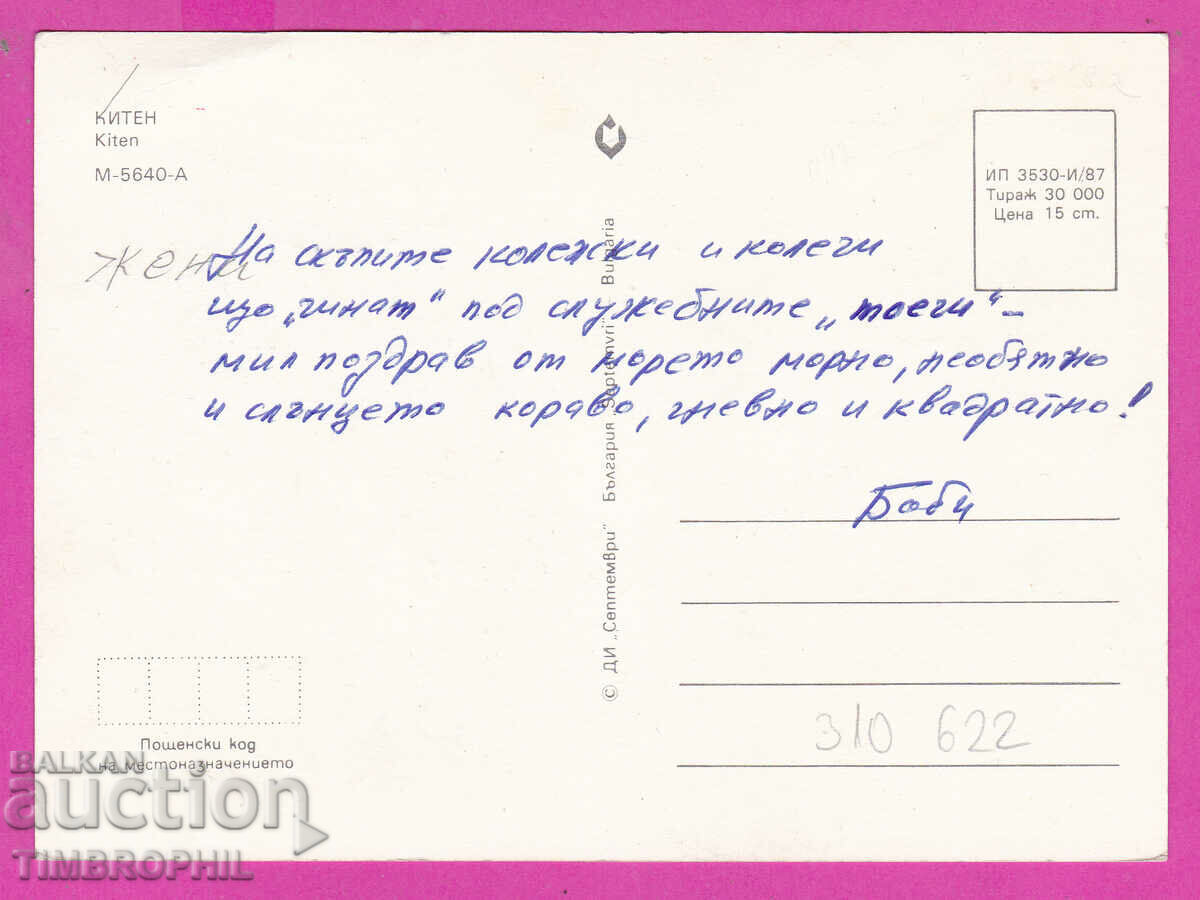 КИТЕН
Kiten
М-5640-А
ИП 3530-И/87
Тираж 30 000
Цена 15 ст.
жени
На скъпите колежки и колеги
що „гинат“ под служебните „тоеги“ –
мил поздрав от морето морно, необятно
и слънцето кораво, гневно и квадратно!
Боби
© ДИ „Септември“ България „Septemvri“ Bulgaria
310 622
Пощенски код
на местоназначението
BALKAN
auction
TIMBROPHIL